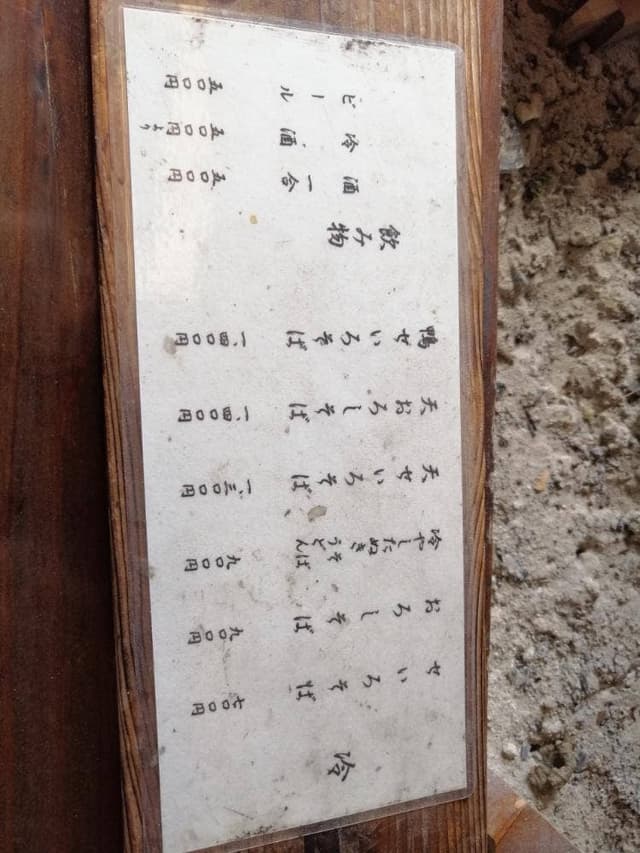 冷
せいろそば 七〇〇円
おろしそば 九〇〇円
冷やしたぬき そば うどん 九〇〇円
天せいろそば 一、三〇〇円
天おろしそば 一、四〇〇円
鴨せいろそば 一、四〇〇円
飲み物
酒 一合 五〇〇円
冷酒 五〇〇円より
ビール 五〇〇円